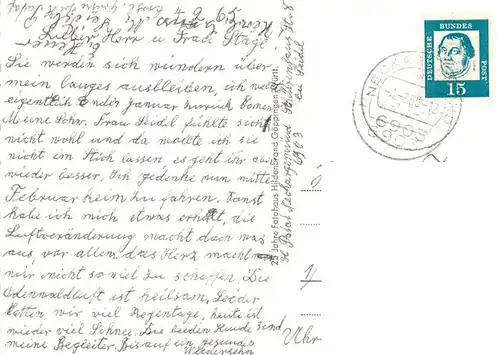 Lieber Herr u Frau Stage!
Sie werden sich wundern über
mein langes ausbleiben, ich wollte
eigentlich Ender Januar zurück kommen
Meine Schw. Frau Seidel fühlte sich
nicht wohl und da mollte ich sie
nicht im Stich lassen, es geht ihr aber
wieder besser. Ich gedenke nun mitte
Februar heim zu fahren. Sonst
habe ich mich etwas erholt, die
Luftveränderung macht doch was
aus, vor allem das Herz macht
mir nicht so viel zu schaffen. Die
Odenwaldluft ist heilsam. Leider
hatten wir viel Regentage, heute ist
wieder viel Schnee. Die beiden Hunde sind
meine Begleiter. Bis auf ein gesundes
Wiedersehn
25 Jahre Fotohaus Hildenbrand Göppingen, Württ.
6903
DEUTSCHE BUNDES POST
15
6903
Uhr